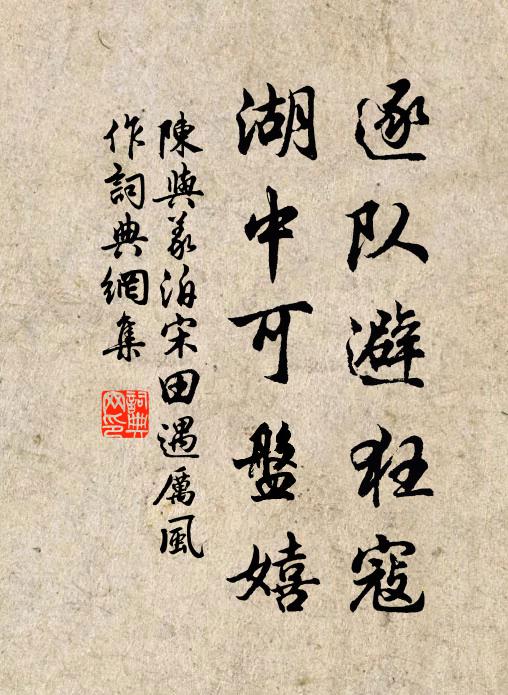 逐队避狂寇
湖中可盤嬉
陳與義泊宋田遇厲風
作詞典網集
詞典網印